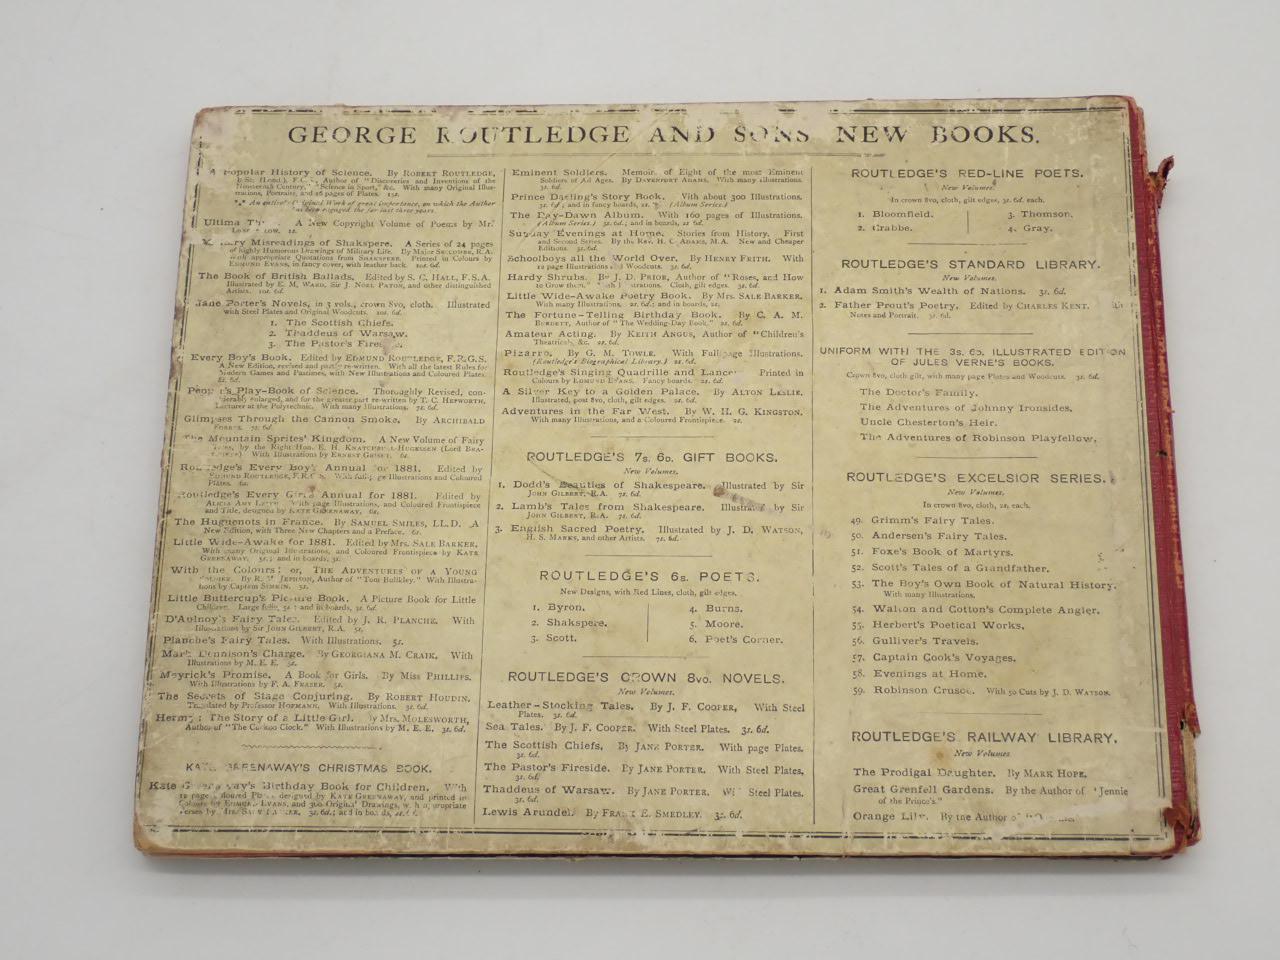 GEORGE ROUTLEDGE AND SONS NEW BOOKS.
A Popular History of Science. By ROBERT ROUTLEDGE,
B.Sc. (Lond.), F.C.S., Author of "Discoveries and Inventions of the
Nineteenth Century," "Science in Sport," &c. With many Original Illus-
trations, Portraits, and 16 pages of Plates.
*** An entirely Original Work of great importance, on which the Author
has been engaged the for last three years.
Ultima A New Copyright Volume of Poems by Mr.
Misreadings of Shakspere. A Series of 24 pages
of highly Humorous Drawings of Military Life. By Major SECCOMBE, R.A.
With appropriate Quotations from SHAKSPERE. Printed in Colours by
EDMUND EVANS, in fancy cover, with leather back. 10s. 6d.
The Book of British Ballads. Edited by S. C. HALL, F.S.A.
Illustrated by E. M. WARD, Sir J. NOEL PATON, and other distinguished
Artists. 10s. 6d.
Jane Porter's Novels, in 3 vols., crown 8vo, cloth. Illustrated
with Steel Plates and Original Woodcuts. 10s. 6d.
1. The Scottish Chiefs.
2. Thaddeus of Warsaw.
3. The Pastor's
Every Boy's Book. Edited by EDMUND ROUTLEDGE, F.R.G.S.
A New Edition, revised and partly re-written. With all the latest Rules for
Modern Games and Pastimes, with New Illustrations and Coloured Plates.
8s. 6d.
People's Play-Book of Science. Thoroughly Revised, con-
siderably enlarged, and for the greater part re-written by T. C. HEPWORTH,
Lecturer at the Polytechnic. With many Illustrations. 7s. 6d.
Glimpses Through the Cannon Smoke. By ARCHIBALD
FORBES. 7s. 6d.
The Mountain Sprites' Kingdom. A New Volume of Fairy
Tales, by the Right Hon. E. H. KNATCHBULL-HUGESSEN (Lord BRA-
With Illustrations by ERNEST GRISET. 6s.
Routledge's Every Boy's Annual for 1881. Edited by
EDMUND ROUTLEDGE, F.R.G.S. With full-page Illustrations and Coloured
Plates. 6s.
Routledge's Every Girl's Annual for 1881. Edited by
ALICIA AMY LEITH. With page Illustrations, and Coloured Frontispiece
and Title, designed by KATE GREENAWAY. 6s.
The Huguenots in France. By SAMUEL SMILES, LL.D. A
New Edition, with Three New Chapters and a Preface. 6s.
Little Wide-Awake for 1881. Edited by Mrs. SALE BARKER,
With many Original Illustrations, and Coloured Frontispiece by KATE
GREENAWAY. 5s.; and in boards, 3s.
With the Colours; or, THE ADVENTURES OF A YOUNG
SOLDIER. By R. M. JEPHSON, Author of "Tom Bullkley." With Illustra-
tions by Captain SIMKIN. 5s.
Little Buttercup's Picture Book. A Picture Book for Little
Children. Large folio, 5s.; and in boards, 3s. 6d.
D'Aulnoy's Fairy Tales. Edited by J. R. PLANCHE. With
Illustrations by Sir JOHN GILBERT, R.A. 5s.
Planche's Fairy Tales. With Illustrations. 5s.
Mark Dennison's Charge. By GEORGIANA M. CRAIK. With
Illustrations by M. E. E. 5s.
Meyrick's Promise. A Book for Girls. By MISS PHILLIPS.
With Illustrations by F. A. FRASER. 5s.
The Secrets of Stage Conjuring. By ROBERT HOUDIN.
Translated by Professor HOFFMANN. With Illustrations. 5s.
Hermy: The Story of a Little Girl. By Mrs. MOLESWORTH,
Author of "The Cuckoo Clock." With Illustrations by M. E. E. 3s. 6d.
KATE GREENAWAY'S CHRISTMAS BOOK.
Kate Greenaway's Birthday Book for Children. With
12 pages Coloured Plates designed by KATE GREENAWAY, and printed in
Colours by EDMUND EVANS, and 300 Original Drawings, with appropriate
Verses by Mrs. SALE BARKER, 3s. 6d.; and in boards,
Eminent Soldiers. Memoir of Eight of the most Eminent
Soldiers of All Ages. By DAVENPORT ADAMS. With many Illustrations.
3s. 6d.
Prince Darling's Story Book. With about 300 Illustrations.
3s. 6d.; and in fancy boards, 2s. (Album Series.)
The Day-Dawn Album. With 160 pages of Illustrations.
(Album Series.) 3s. 6d.; and in boards, 2s. 6d.
Sunday Evenings at Home. Stories from History. First
and Second Series. By the REV. H. C. ADAMS, M.A. New and Cheaper
Editions. 3s. 6d.
Schoolboys all the World Over. By HENRY FRITH. With
12 page Illustrations and Woodcuts. 3s. 6d.
Hardy Shrubs. By J. D. PRIOR, Author of "Roses, and How
to Grow them." With Illustrations. Cloth, gilt edges. 3s. 6d.
Little Wide-Awake Poetry Book. By Mrs. SALE BARKER.
With many Illustrations. 2s. 6d.; and in boards, 2s.
The Fortune-Telling Birthday Book. By C. A. M.
BURDETT, Author of "The Wedding-Day Book." 2s. 6d.
Amateur Acting. By KEITH ANGUS, Author of "Children's
Theatricals," &c. 2s. 6d.
Pizarro. By G. M. TOWLE. With Full page Illustrations.
(Routledge's Biographical Library.) 2s. 6d.
Routledge's Singing Quadrille and Printed in
Colours by EDMUND EVANS. Fancy boards. 2s. 6d.
A Silver Key to a Golden Palace. By ALTON LESLIE.
Illustrated, post 8vo, cloth, gilt edges. 2s. 6d.
Adventures in the Far West. By W. H. G. KINGSTON.
With many Illustrations, and a Coloured Frontispiece. 2s.
ROUTLEDGE'S 7s. 6D. GIFT BOOKS.
New Volumes.
1. Dodd's Beauties of Shakespeare. Illustrated by Sir
JOHN GILBERT, R.A. 7s. 6d.
2. Lamb's Tales from Shakespeare. Illustrated by Sir
JOHN GILBERT, R.A. 7s. 6d.
3. English Sacred Poetry. Illustrated by J. D. WATSON,
H. S. MARKS, and other Artists. 7s. 6d.
ROUTLEDGE'S 6s. POETS.
New Designs, with Red Lines, cloth, gilt edges.
1. Byron.
2. Shakspere.
3. Scott.
4. Burns.
5. Moore.
6. Poet's Corner.
ROUTLEDGE'S CROWN 8vo. NOVELS.
New Volumes.
Leather-Stocking Tales. By J. F. COOPER, With Steel
Plates. 3s. 6d.
Sea Tales. By J. F. COOPER. With Steel Plates. 3s. 6d.
The Scottish Chiefs. By JANE PORTER. With page Plates.
3s. 6d.
The Pastor's Fireside. By JANE PORTER. With Steel Plates,
3s. 6d.
Thaddeus of Warsaw. By JANE PORTER. With Steel Plates.
3s. 6d.
Lewis Arundel. By FRANK E. SMEDLEY. 3s. 6d.
ROUTLEDGE'S RED-LINE POETS.
New Volumes.
In crown 8vo, cloth, gilt edges, 3s. 6d. each.
1. Bloomfield.
2. Crabbe.
3. Thomson.
4. Gray.
ROUTLEDGE'S STANDARD LIBRARY.
1. Adam Smith's Wealth of Nations. 3s. 6d.
2. Father Prout's Poetry. Edited by CHARLES KENT.
Notes and Portrait. 3s. 6d.
UNIFORM WITH THE 3s. 6D. ILLUSTRATED EDITION
OF JULES VERNE'S BOOKS.
Crown 8vo, cloth gilt, with many page Plates and Woodcuts. 3s. 6d.
The Doctor's Family.
The Adventures of Johnny Ironsides.
Uncle Chesterton's Heir.
The Adventures of Robinson Playfellow.
ROUTLEDGE'S EXCELSIOR SERIES.
New Volumes.
In crown 8vo, cloth, 2s. each.
49. Grimm's Fairy Tales.
50. Andersen's Fairy Tales.
51. Foxe's Book of Martyrs.
52. Scott's Tales of a Grandfather.
53. The Boy's Own Book of Natural History.
With many Illustrations.
54. Walton and Cotton's Complete Angler.
55. Herbert's Poetical Works.
56. Gulliver's Travels.
57. Captain Cook's Voyages.
58. Evenings at Home.
59. Robinson Crusoe. With 50 Cuts by J. D. WATSON.
ROUTLEDGE'S RAILWAY LIBRARY.
New Volumes
The Prodigal Daughter. By MARK HOPE.
Great Grenfell Gardens. By the Author of "Jennie
of the Prince's."
Orange Lily. By the Author of